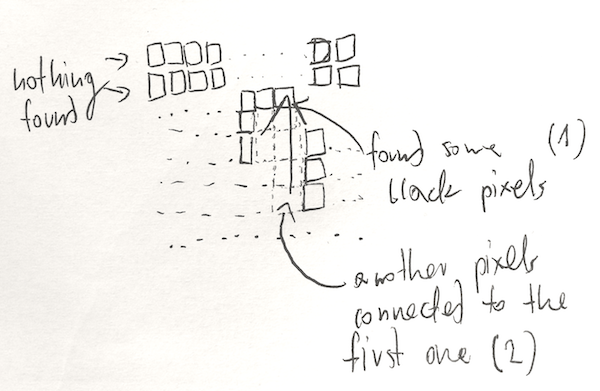 nothing
found
found some (1)
black pixels
another pixels
connected to the
first one (2)